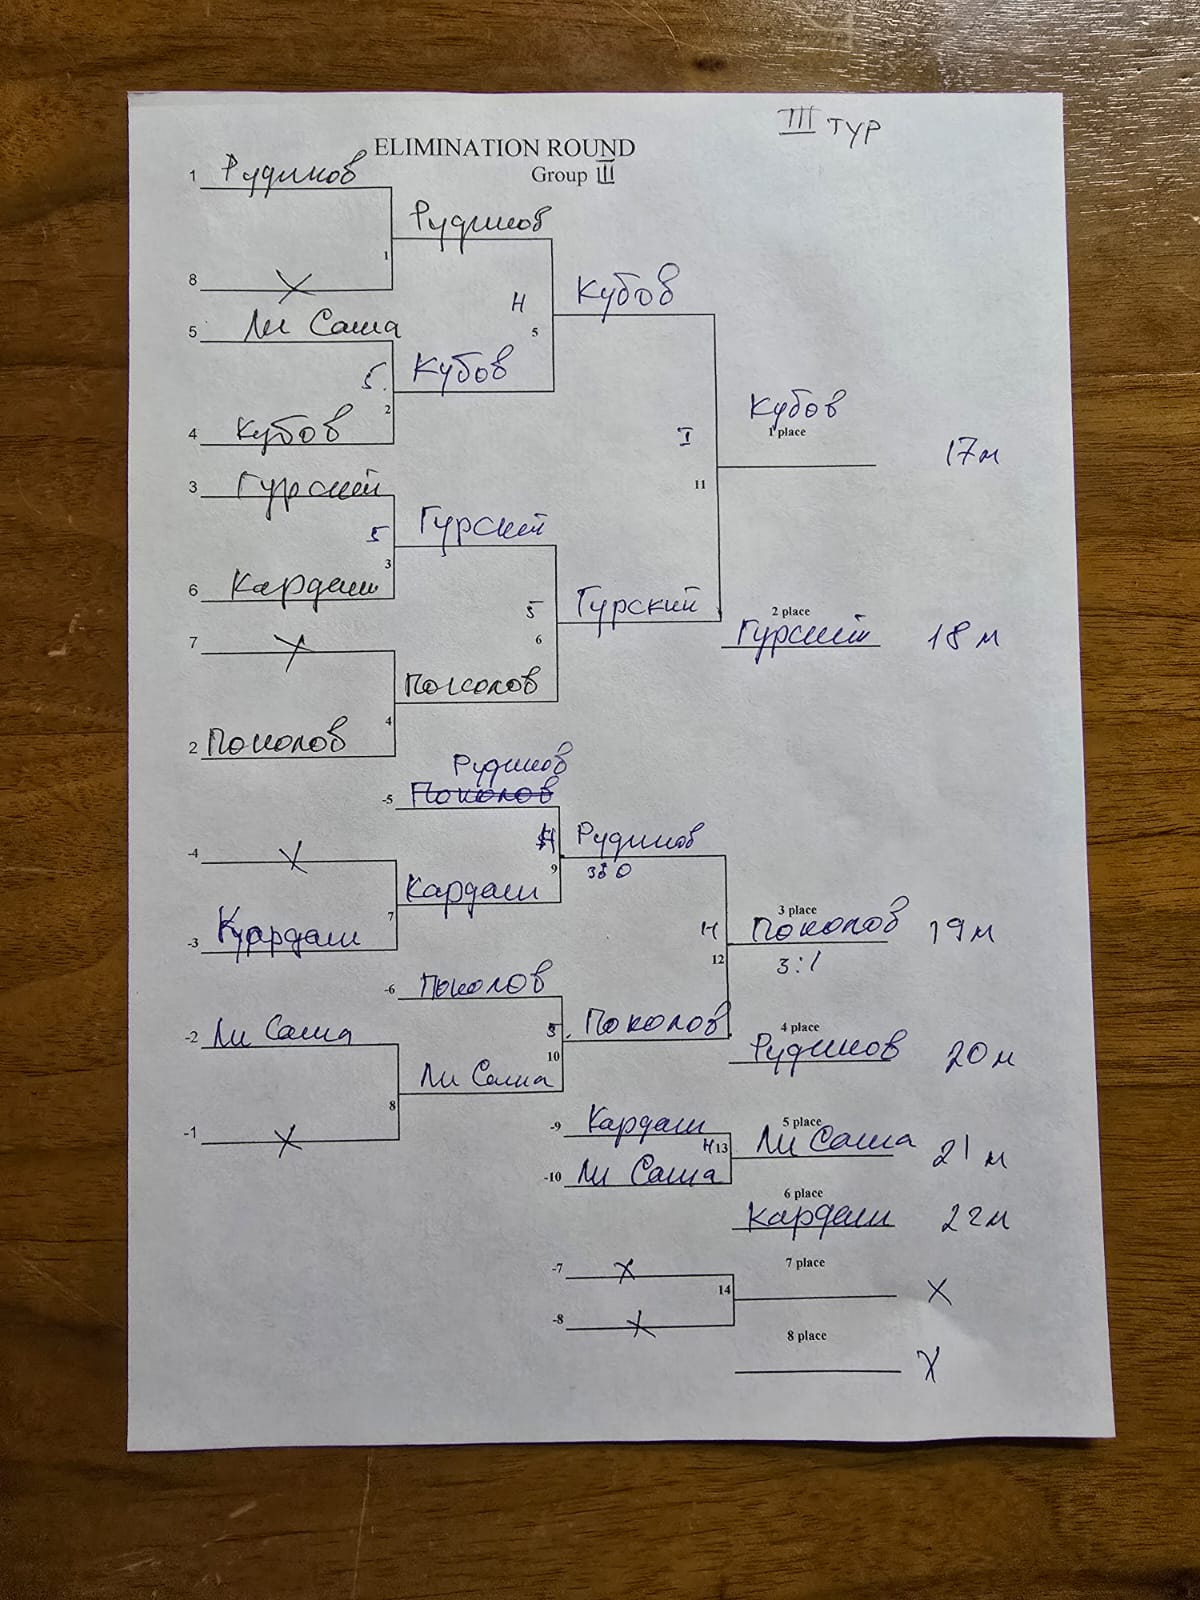 III ТУР
ELIMINATION ROUND
Group III
1 Рудиков
Рудиков
1
8 X
Кубов
Н
5
5 Ли Саша
5.
Кубов
2
4 Кубов
Кубов
1 place
I
17 м
11
3 Гурский
5
Гурский
3
6 Кардаш
5
Гурский
2 place
6
Гурский 18 м
7 X
Поколов
4
2 Поколов
Рудиков
-5 Поколов
Н
Рудиков
3:0
9
-4 X
Кардаш
7
-3 Кардаш
3 place
Н
Поколов 19 м
12
3:1
-6 Поколов
Поколов
4 place
-2 Ли Саша
10
Рудиков 20 м
Ли Саша
8
-1 X
-9 Кардаш
5 place
Н 13
Ли Саша 21 м
-10 Ли Саша
6 place
Кардаш 22 м
7 place
-7 X
14
X
-8 X
8 place
X